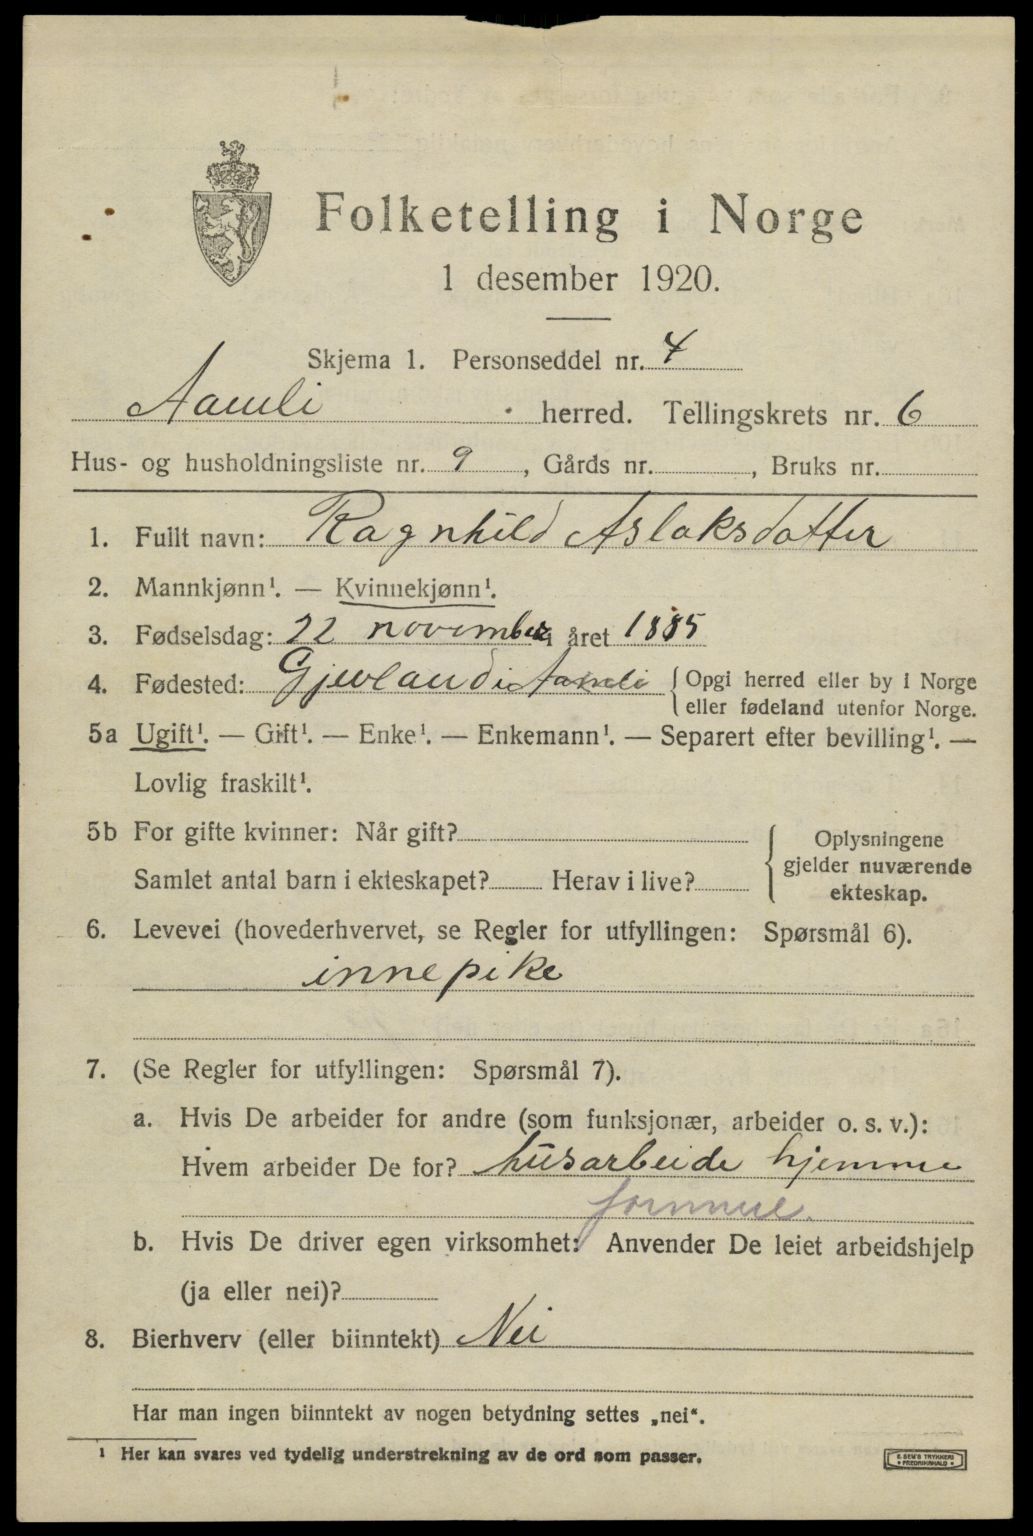 Folketelling i Norge
1 desember 1920.
Skjema 1. Personseddel nr. 4
Aamli herred. Tellingskrets nr. 6
Hus- og husholdningsliste nr. 9, Gårds nr. , Bruks nr.
1. Fullt navn: Ragnhild Aslaksdatter
2. Mannkjønn¹. — Kvinnekjønn¹.
3. Fødselsdag: 22 november i året 1885
4. Fødested: Gjevland i Aamli { Opgi herred eller by i Norge
eller fødeland utenfor Norge.
5a Ugift¹. — Gift¹. — Enke¹. — Enkemann¹. — Separert efter bevilling¹. —
Lovlig fraskilt¹.
5b For gifte kvinner: Når gift?
Samlet antal barn i ekteskapet? Herav i live?
{ Oplysningene
gjelder nuværende
ekteskap.
6. Levevei (hovederhvervet, se Regler for utfyllingen: Spørsmål 6).
innepike
7. (Se Regler for utfyllingen: Spørsmål 7).
a. Hvis De arbeider for andre (som funksjonær, arbeider o. s. v.):
Hvem arbeider De for? husarbeide hjemme
b. Hvis De driver egen virksomhet: Anvender De leiet arbeidshjelp
(ja eller nei)?
8. Bierhverv (eller biinntekt) Nei
Har man ingen biinntekt av nogen betydning settes „nei“.
¹ Her kan svares ved tydelig understrekning av de ord som passer.
E. SEM'S TRYKKERI
FREDRIKSHALD